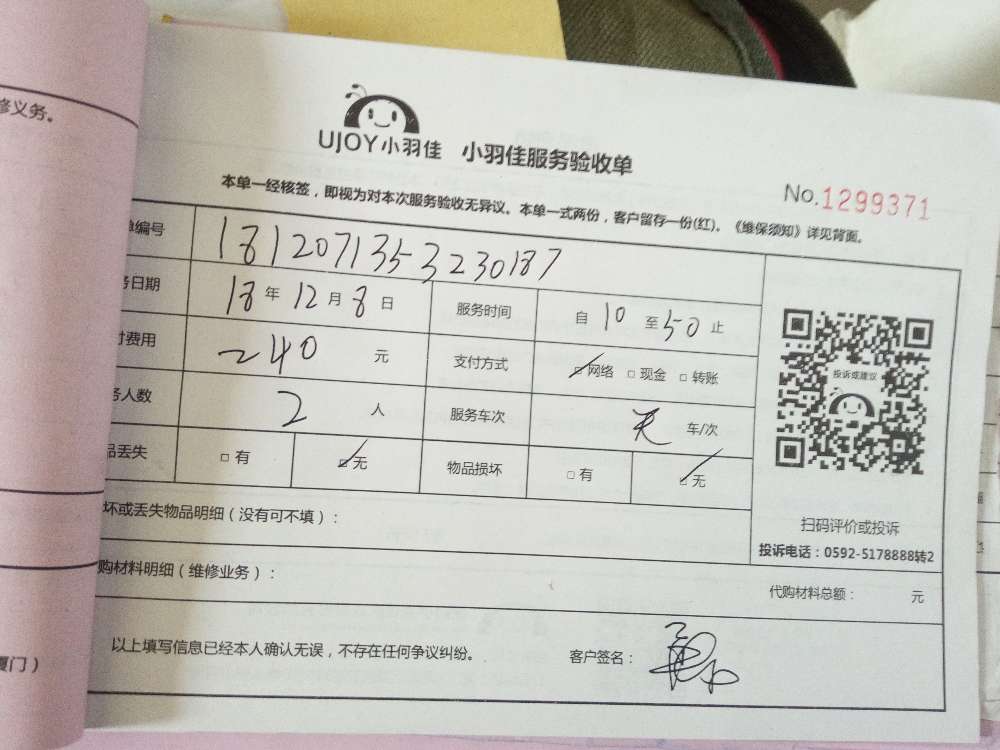 修义务。
UJOY小羽佳 小羽佳服务验收单
No.1299371
本单一经核签，即视为对本次服务验收无异议。本单一式两份，客户留存一份(红)。《维保须知》详见背面。
单编号 1812071353230187
务日期 18年12月8日 服务时间 自10至50止
付费用 240元 支付方式 ☑网络 □现金 □转账
务人数 2人 服务车次 无 车/次
品丢失 □有 ☑无 物品损坏 □有 ☑无
投诉或建议
扫码评价或投诉
投诉电话：0592-5178888转2
坏或丢失物品明细（没有可不填）：
购材料明细（维修业务）：
代购材料总额： 元
以上填写信息已经本人确认无误，不存在任何争议纠纷。 客户签名：
厦门）